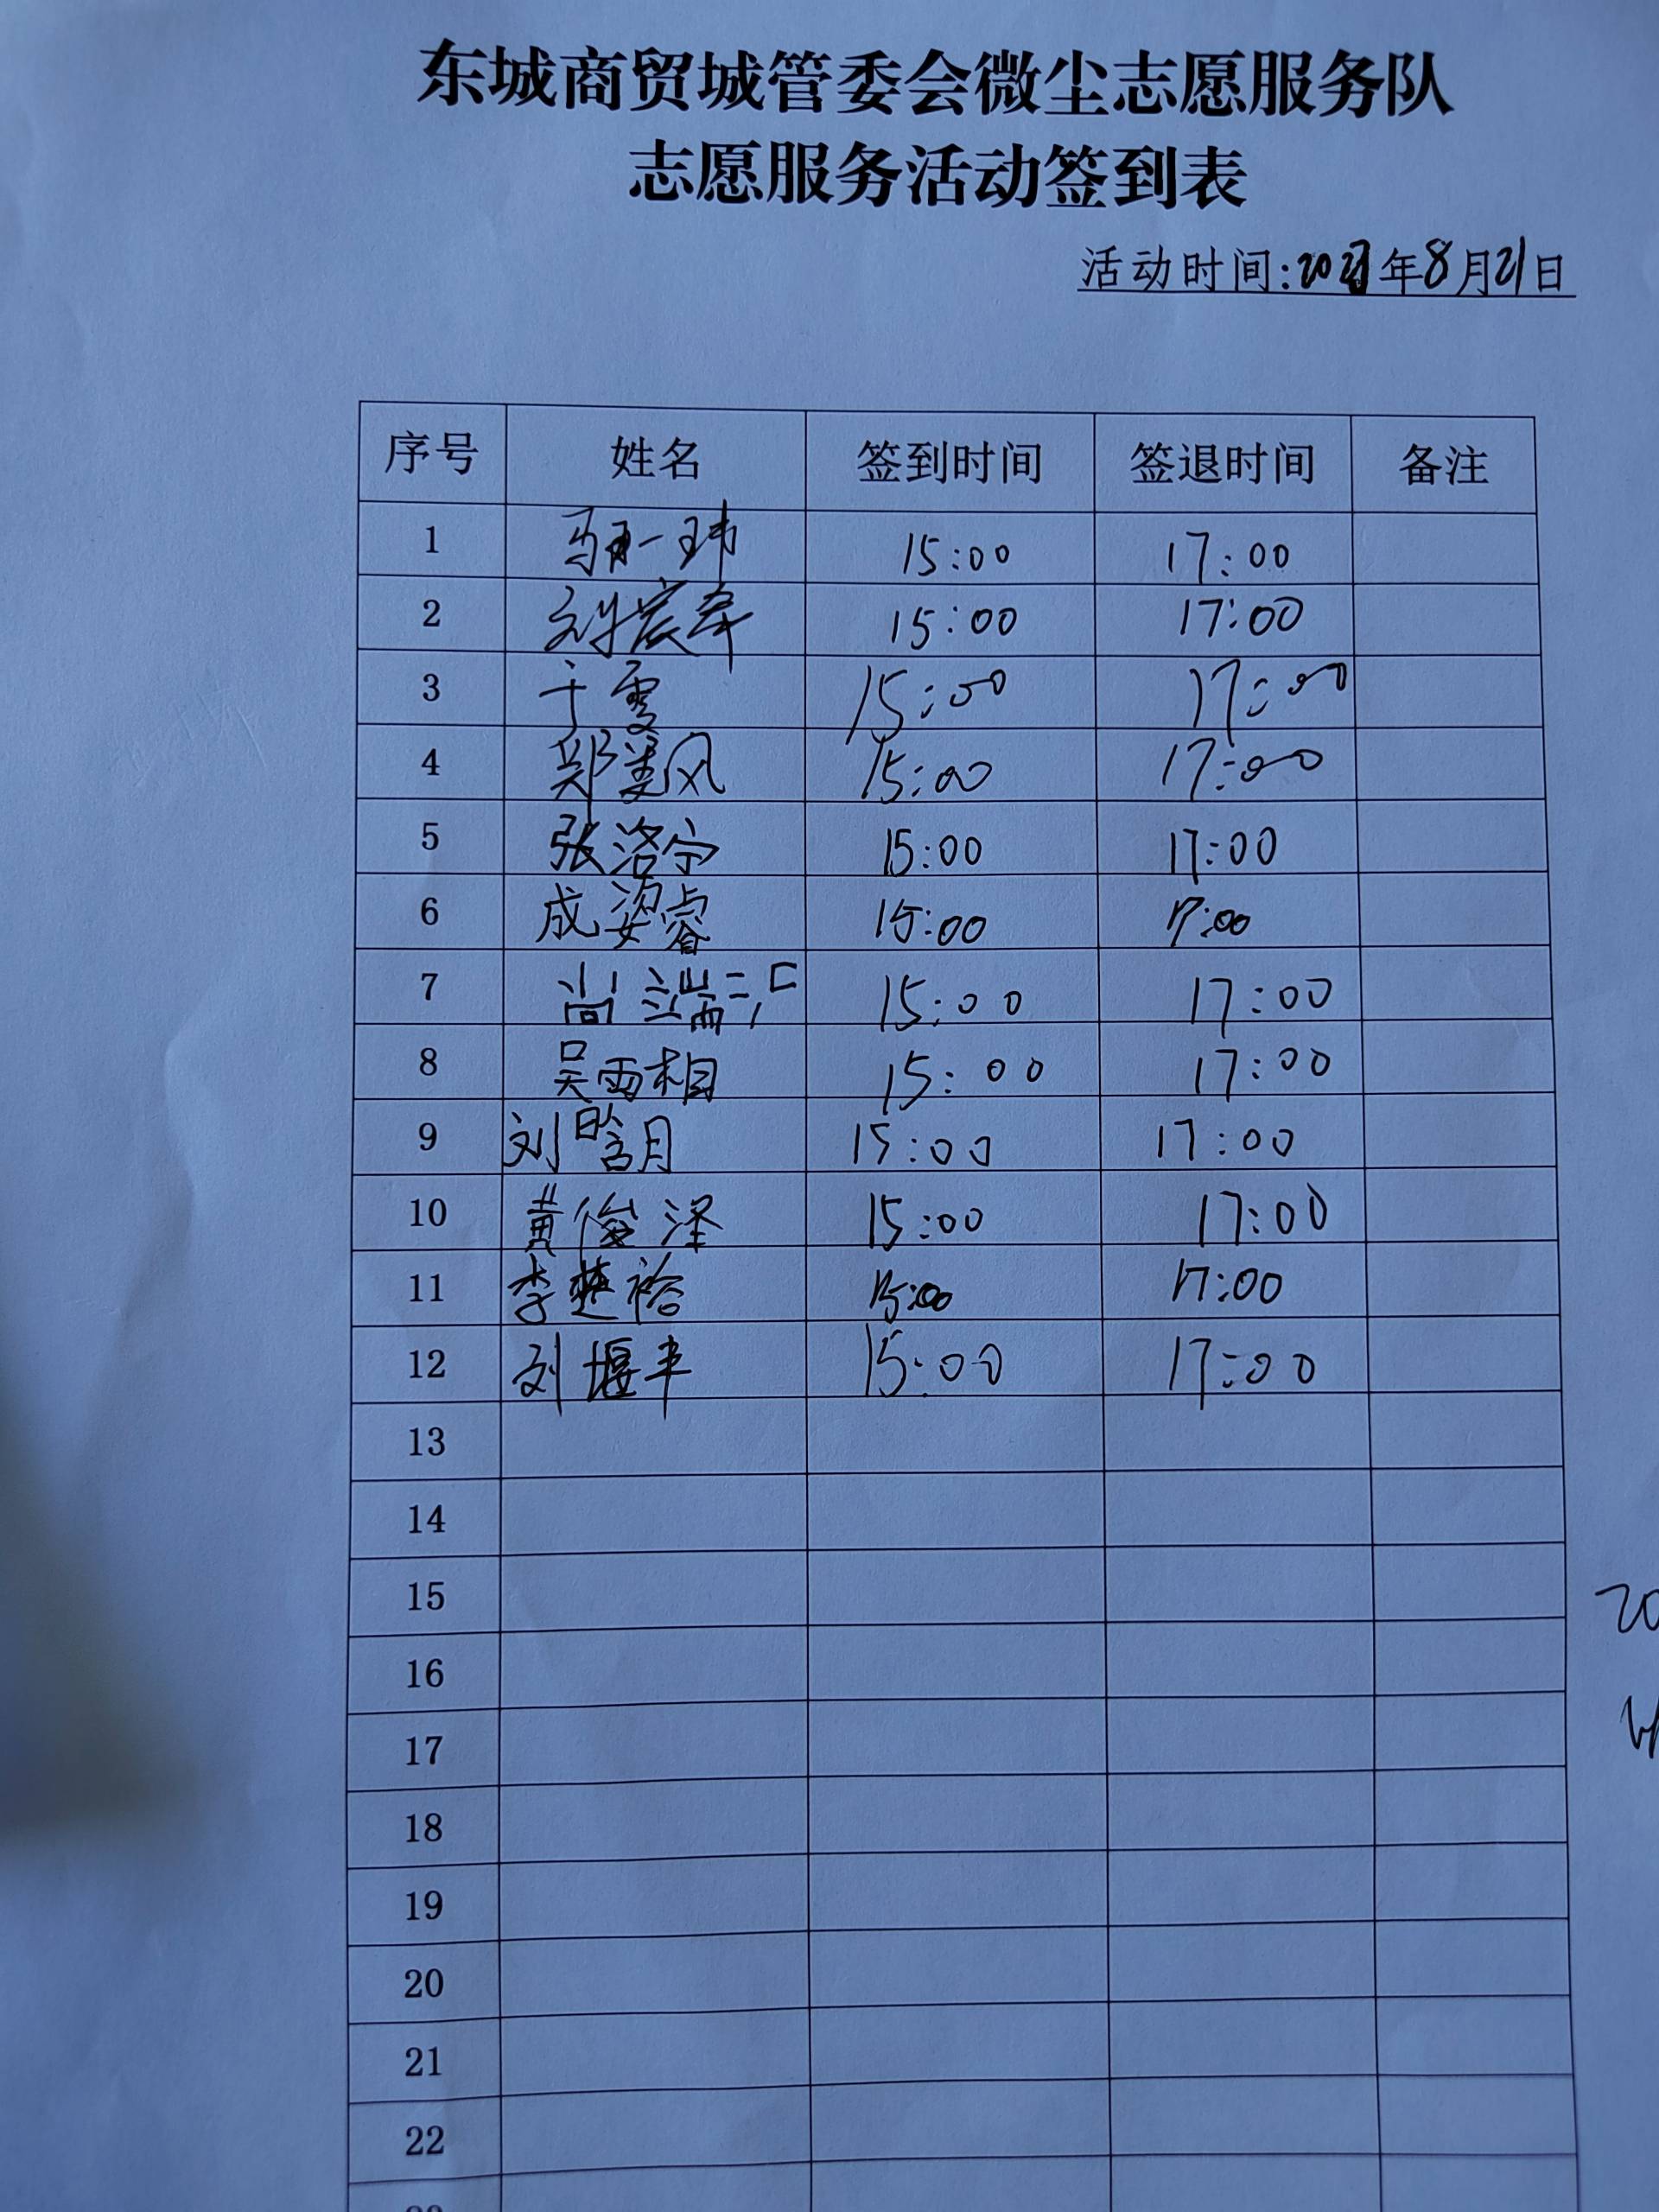 东城商贸城管委会微尘志愿服务队
志愿服务活动签到表
活动时间: 年8月21日
序号 姓名 签到时间 签退时间 备注
1 一玮 15:00 17:00
2 刘宸 15:00 17:00
3 于雯 15:00 17:00
4 郑美风 15:00 17:00
5 张洛宁 15:00 17:00
6 成姿睿 15:00 17:00
7 尚端 15:00 17:00
8 吴雨相 15:00 17:00
9 刘晗月 15:00 17:00
10 黄俊泽 15:00 17:00
11 李楚裕 15:00 17:00
12 刘堰丰 15:00 17:00
13
14
15
16
17
18
19
20
21
22